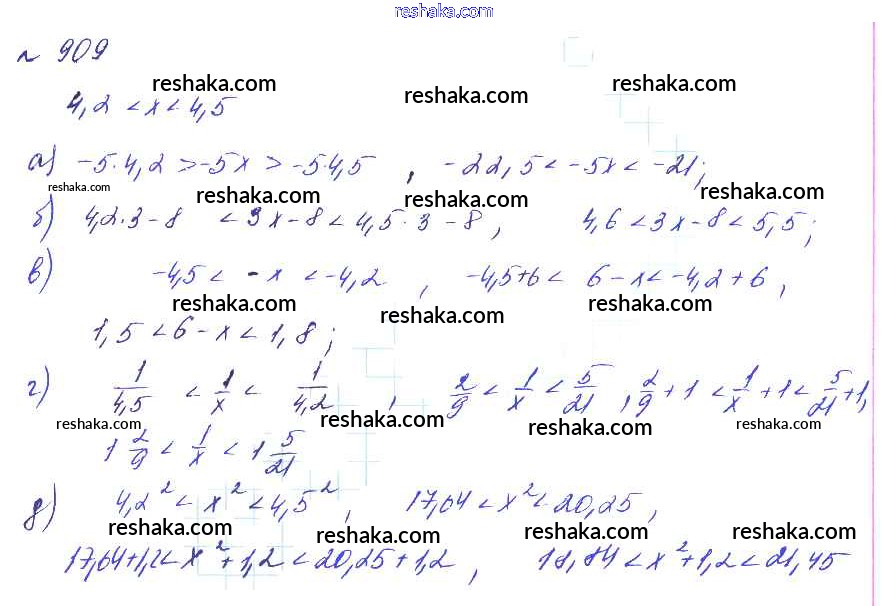 reshaka.com
№ 909
reshaka.com reshaka.com reshaka.com
4,2 < x < 4,5
а) -5·4,2 > -5x > -5·4,5 , -22,5 < -5x < -21;
reshaka.com reshaka.com reshaka.com reshaka.com
б) 4,2·3-8 < 3x-8 < 4,5·3-8, 4,6 < 3x-8 < 5,5;
в) -4,5 < -x < -4,2, -4,5+6 < 6-x < -4,2+6,
reshaka.com reshaka.com reshaka.com
1,5 < 6-x < 1,8;
г) 1/4,5 < 1/x < 1/4,2, 2/9 < 1/x < 5/21, 2/9+1 < 1/x+1 < 5/21+1,
reshaka.com reshaka.com reshaka.com reshaka.com
1 2/9 < 1/x < 1 5/21
д) 4,2² < x² < 4,5², 17,64 < x² < 20,25,
reshaka.com reshaka.com reshaka.com reshaka.com
17,64+1,2 < x²+1,2 < 20,25+1,2, 18,84 < x²+1,2 < 21,45